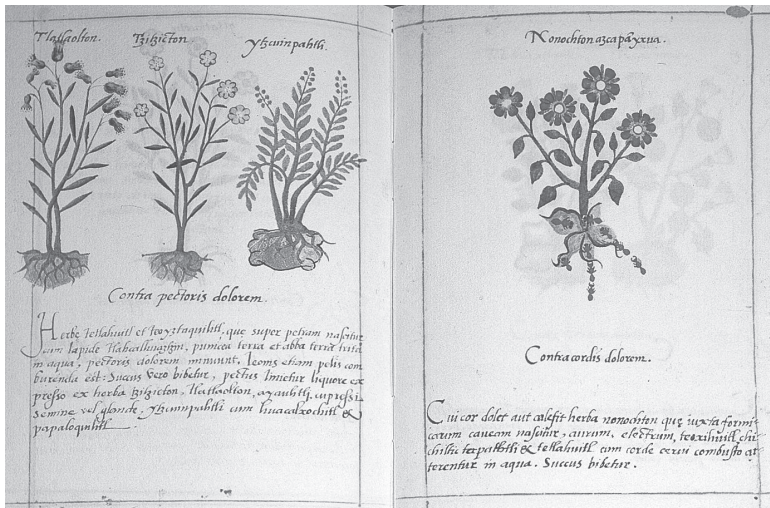 Tlatlaolton. Tzitzicton. Ytzcuinpahtli.
Contra pectoris dolorem.
Herbę tetlahuitl et teoyztaquihitl, que super petram nascitur
cum lapide tlahcalhuatzin, punicea terra et alba terra trita
in aqua, pectoris dolorem minuunt. leonis etiam pelis com
burenda est. Succus vero bibetur, pectus linietur liquore ex
presso ex herba tzitzicton, tlatlaolton, ayauhtli, cupressi
semine vel glande, ytzcuinpahtli cum huacalxochitl &
papaloquihitl
Nonochton azcapanyxua.
Contra cordis dolorem.
Cui cor dolet aut calefit herba nonochton que iuxta formi-
carum caveam nascitur, aurum, electrum, teoxihuitl, chi-
chiltic tapachtli & tetlahuitl cum corde cervi combusto at-
terentur in aqua. Succus bibetur.